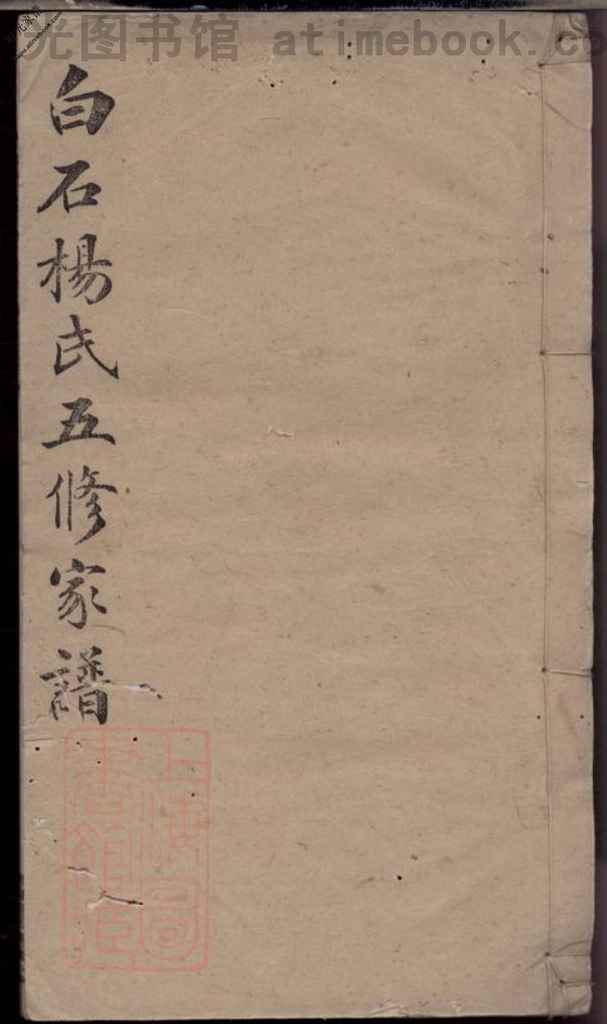 光图书馆 atimebook.co
白石楊氏五修家譜